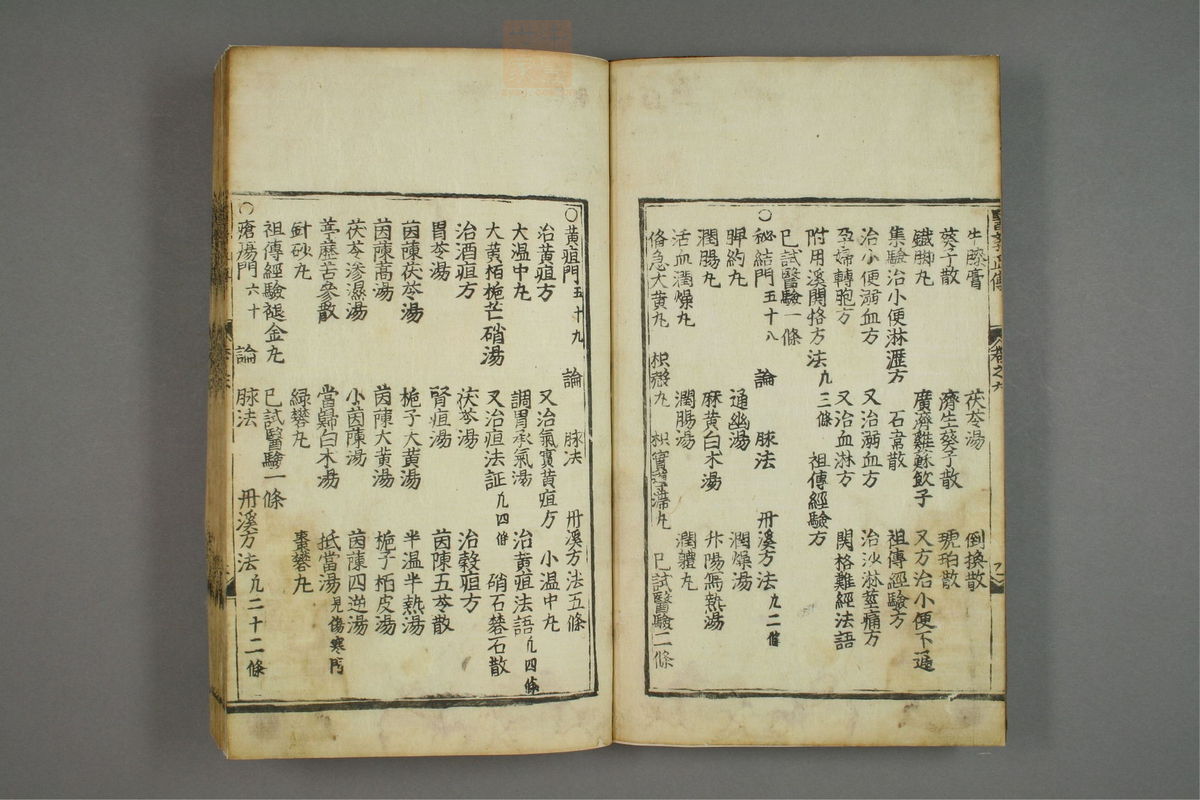 牛膝膏 茯苓湯 倒換散
葵子散 濟生葵子散 琥珀散
鐵脚丸 廣濟雞蘇飲子 又方治小便不通
集驗治小便淋瀝方 石韋散 祖傳經驗方
治小便溺血方 又治溺血方 治沙淋莖痛方
孕婦轉胞方 又治血淋方 関格難經法語
附用溪関格方法凡三條 祖傳經驗方
已試醫驗一條
○秘結門五十八 論 脉法 丹溪方法凡二條
脾約丸 通幽湯 潤燥湯
潤腸丸 麻黄白朮湯 升陽㵼熱湯
活血潤燥丸 潤腸湯 潤軆丸
俻急大黄丸 枳殼丸 枳實導滯丸 已試醫驗二條
○黄疸門五十九 論 脉法 丹溪方法五條
治黄疸方 又治氣實黄疸方 小温中丸
大温中丸 調胃承氣湯 治黄疸法語凡四條
大黄栢梔芒硝湯 又治疸法証凡四條 硝石礬石散
治酒疸方 茯苓湯 治穀疸方
胃苓湯 腎疸湯 茵陳五苓散
茵蔯茯苓湯 梔子大黄湯 半温半熱湯
茵蔯高湯 茵蔯大黄湯 梔子栢皮湯
茯苓滲濕湯 小茵蔯湯 茵蔯四逆湯
葶藶苦參散 當歸白朮湯 抵當湯見傷寒門
針砂丸 緑礬丸 棗礬丸
祖傳經驗褪金丸 已試醫驗一條
○瘡瘍門六十 論 脉法 丹溪方法凡二十二條